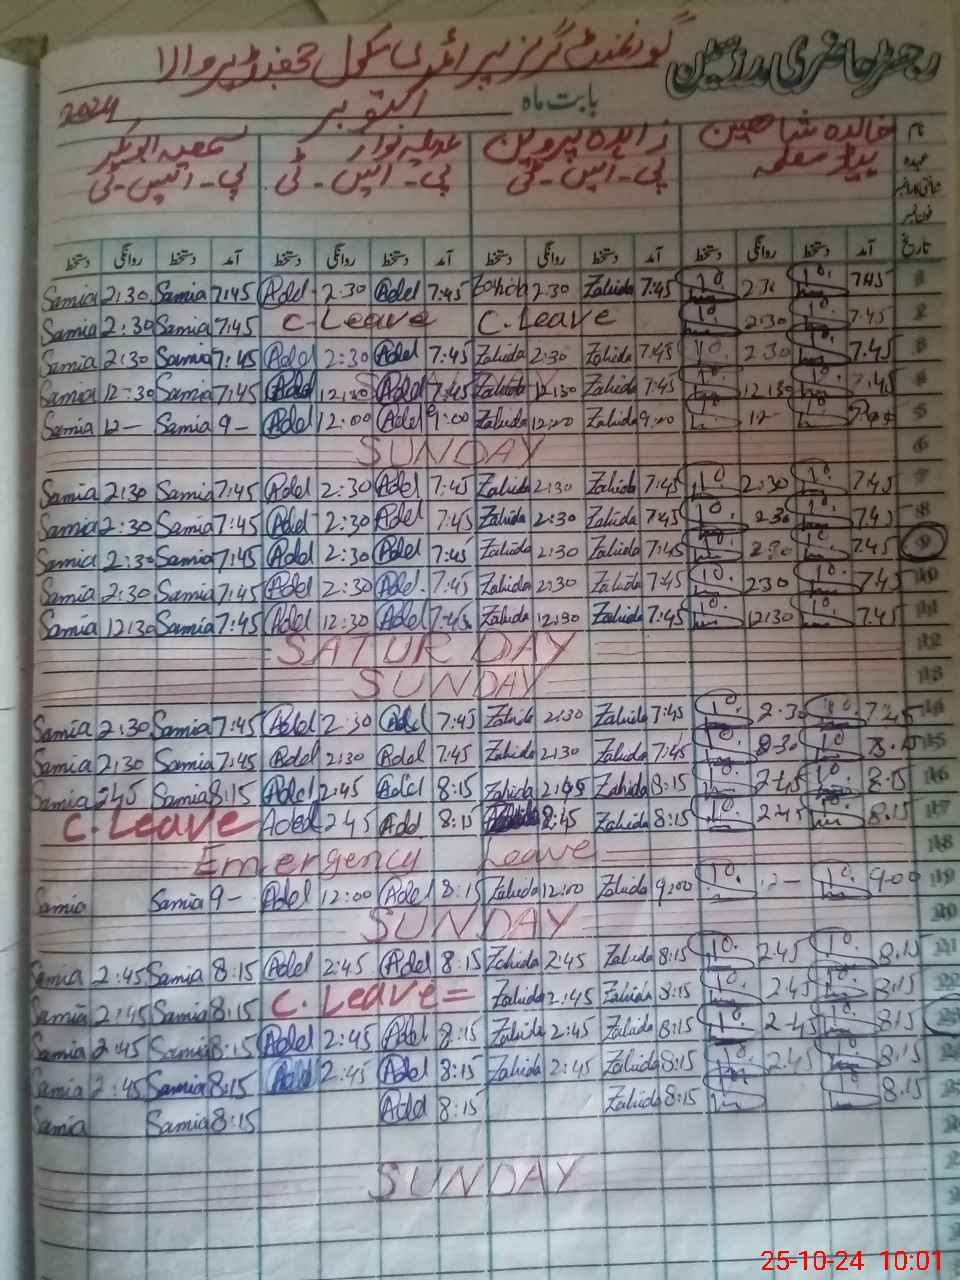 رجسٹر حاضری مدرسین گورنمنٹ گرلز پرائمری سکول
بابت ماہ اکتوبر 2024
نام خالدہ شاہین زاہدہ پروین سمعیہ ابوبکر
عہدہ ہیڈ معلمہ پی۔ایس۔ٹی پی۔ایس۔ٹی پی۔ایس۔ٹی
فون نمبر
تاریخ آمد دستخط روانگی دستخط آمد دستخط روانگی دستخط آمد دستخط روانگی دستخط آمد دستخط روانگی دستخط
Samia 2:30 Samia 7:45 Adel 2:30 Adel 7:45 Zahida 2:30 Zahida 7:45 2:30 7:45 1
Samia 2:30 Samia 7:45 C-Leave C.Leave 2:30 7:45 2
Samia 2:30 Samia 7:45 Adel 2:30 Adel 7:45 Zahida 2:30 Zahida 7:45 2:30 7:45 3
Samia 12:30 Samia 7:45 Adel 12:30 Adel 7:45 Zahida 12:30 Zahida 7:45 12:30 7:45 4
Samia 12- Samia 9- Adel 12:00 Adel 9:00 Zahida 12:00 Zahida 9:00 12- 5
SUNDAY 6
Samia 2:30 Samia 7:45 Adel 2:30 Adel 7:45 Zahida 2:30 Zahida 7:45 2:30 7:45 7
Samia 2:30 Samia 7:45 Adel 2:30 Adel 7:45 Zahida 2:30 Zahida 7:45 2:30 7:45 8
Samia 2:30 Samia 7:45 Adel 2:30 Adel 7:45 Zahida 2:30 Zahida 7:45 2:30 7:45 9
Samia 2:30 Samia 7:45 Adel 2:30 Adel 7:45 Zahida 2:30 Zahida 7:45 2:30 7:45 10
Samia 12:30 Samia 7:45 Adel 12:30 Adel 7:45 Zahida 12:30 Zahida 7:45 12:30 7:45 11
SATURDAY 12
SUNDAY 13
Samia 2:30 Samia 7:45 Adel 2:30 Adel 7:45 Zahida 2:30 Zahida 7:45 2:30 7:45 14
Samia 2:30 Samia 7:45 Adel 2:30 Adel 7:45 Zahida 2:30 Zahida 7:45 15
Samia 2:45 Samia 8:15 Adel 2:45 Adel 8:15 Zahida 2:45 Zahida 8:15 2:45 8:15 16
C.Leave Adel 2:45 Adel 8:15 2:45 Zahida 8:15 2:45 8:15 17
Emergency Leave 18
Samia Samia 9- Adel 12:00 Adel 8:15 Zahida 12:00 Zahida 9:00 9:00 19
SUNDAY 20
Samia 2:45 Samia 8:15 Adel 2:45 Adel 8:15 Zahida 2:45 Zahida 8:15 2:45 8:15 21
Samia 2:45 Samia 8:15 C.Leave= Zahida 2:45 Zahida 8:15 2:45 8:15 22
Samia 2:45 Samia 8:15 Adel 2:45 Adel 8:15 Zahida 2:45 Zahida 8:15 2:45 8:15 23
Samia 2:45 Samia 8:15 Adel 2:45 Adel 8:15 Zahida 2:45 Zahida 8:15 2:45 8:15
Samia Samia 8:15 Adel 8:15 Zahida 8:15 8:15
SUNDAY
25-10-24 10:01